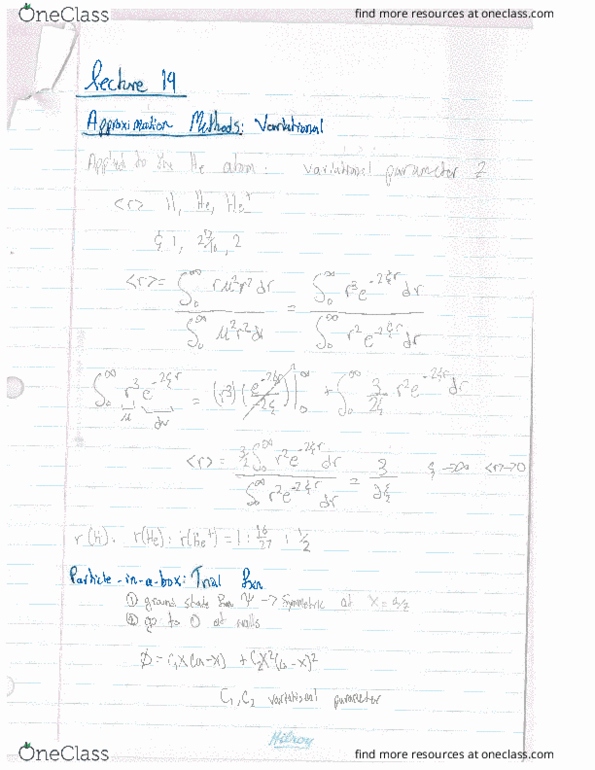 OneClass
find more resources at oneclass.com
Lecture 19
Approximation Methods: Variational
Applied to the He atom: variational parameter Z
<r> H, He, He⁺
ξ 1, 27/16, 2
<r> = ∫₀^∞ r u² r² dr / ∫₀^∞ u² r² dr = ∫₀^∞ r³ e^(-2ξr) dr / ∫₀^∞ r² e^(-2ξr) dr
∫₀^∞ r³ e^(-2ξr) = (r³)(e^(-2ξr) / -2ξ)|₀^∞ + ∫₀^∞ 3/2ξ r² e^(-2ξr) dr
u dv
<r> = 3/2 ∫₀^∞ r² e^(-2ξr) dr / ∫₀^∞ r² e^(-2ξr) dr = 3/2ξ ξ→∞ <r>→0
r(H) : r(He) : r(He⁺) = 1 : 16/27 : 1/2
Particle-in-a-box: Trial fxn
① ground state fxn Ψ → symmetric at x = a/2
② go to 0 at walls
φ = c₁x(a-x) + c₂x²(a-x)²
C₁, C₂ variational parameter
Hilroy
OneClass
find more resources at oneclass.com